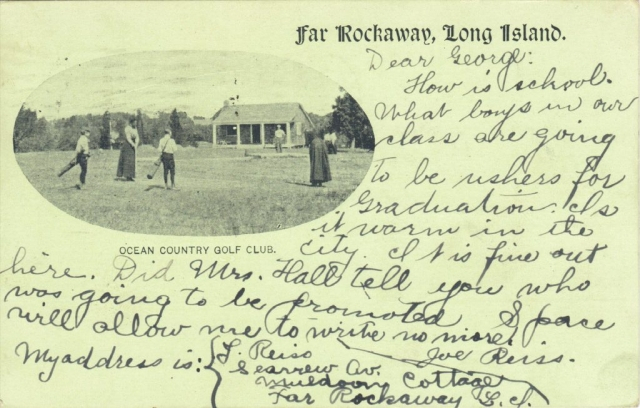 Far Rockaway, Long Island.
Dear George:
How is school.
What boys in our
class are going
to be ushers for
Graduation. Is
it warm in the
city. It is fine out
OCEAN COUNTRY GOLF CLUB.
here. Did Mrs. Hall tell you who
was going to be promoted. Space
will allow me to write no more.
Joe Reiss.
My address is: J. Reiss
Seaview Av.
Muldoon Cottage
Far Rockaway L.I.